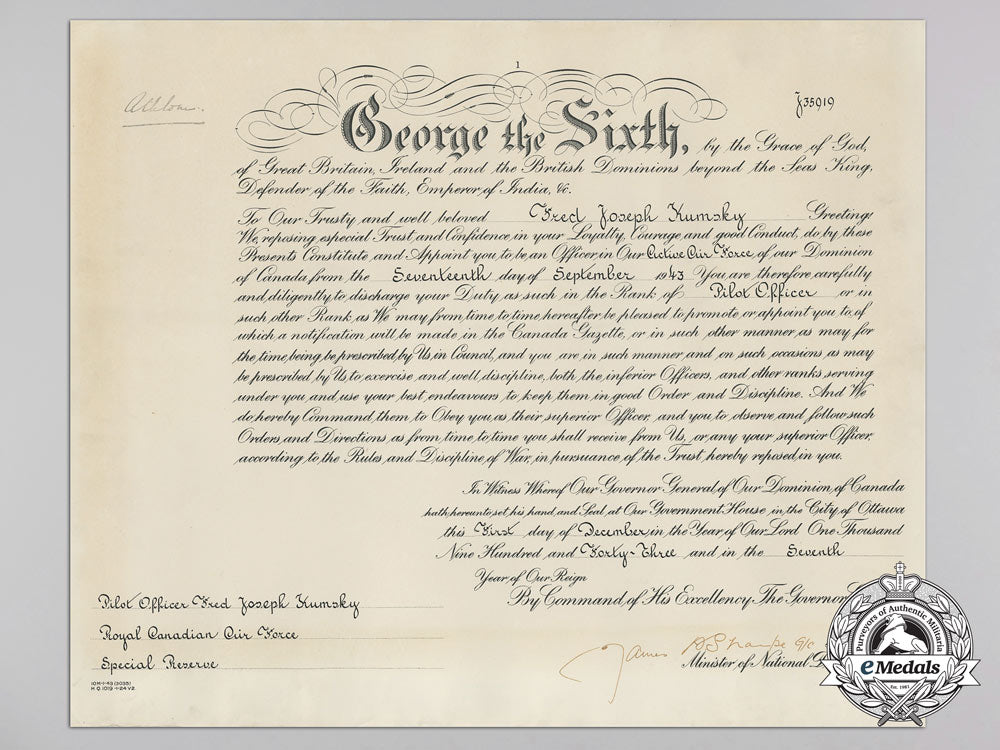 1
J35919
George the Sixth, by the Grace of God,
of Great Britain, Ireland and the British Dominions beyond the Seas King,
Defender of the Faith, Emperor of India, &c.
To Our Trusty and well beloved Fred Joseph Kumsky Greeting:
We, reposing especial Trust and Confidence in your Loyalty, Courage and good Conduct, do by these
Presents Constitute and Appoint you to be an Officer in Our Active Air Force of our Dominion
of Canada from the Seventeenth day of September 1943 You are therefore carefully
and diligently to discharge your Duty as such in the Rank of Pilot Officer or in
such other Rank as We may from time to time hereafter be pleased to promote or appoint you to, of
which a notification will be made in the Canada Gazette, or in such other manner as may for
the time being be prescribed by Us in Council, and you are in such manner and on such occasions as may
be prescribed by Us to exercise and well discipline both the inferior Officers, and other ranks serving
under you and use your best endeavours to keep them in good Order and Discipline. And We
do hereby Command them to Obey you as their superior Officer, and you to observe and follow such
Orders and Directions as from time to time you shall receive from Us, or any your superior Officer,
according to the Rules and Discipline of War, in pursuance of the Trust hereby reposed in you.
In Witness Whereof Our Governor General of Our Dominion of Canada
hath hereunto set his hand and Seal at Our Government House in the City of Ottawa
this First day of December in the Year of Our Lord One Thousand
Nine Hundred and Forty-Three and in the Seventh
Year of Our Reign
By Command of His Excellency The Governor
Pilot Officer Fred Joseph Kumsky
Royal Canadian Air Force
Special Reserve
James
Minister of National
10M-1-43 (3035)
H.Q. 1019-I-24 V2
Purveyors of Authentic Militaria
eMedals
Est. 1987